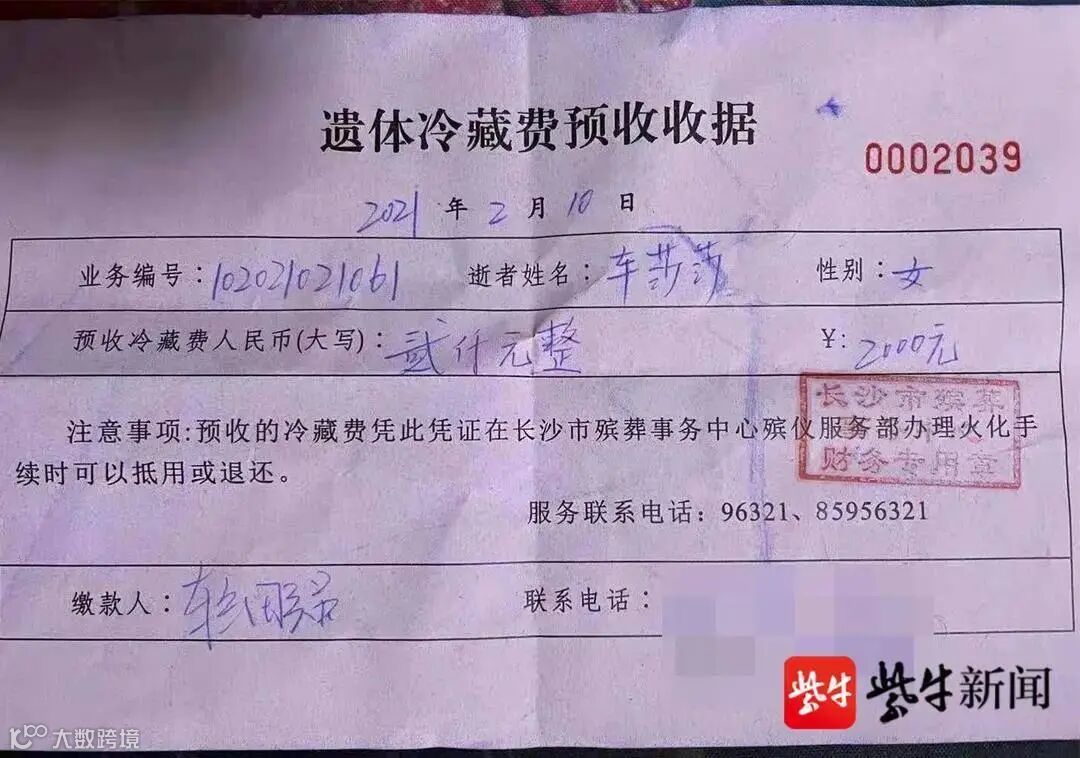 遗体冷藏费预收收据
0002039
2021 年 2 月 10 日
业务编号：102021021061 逝者姓名：车莎莎 性别：女
预收冷藏费人民币(大写)：贰仟元整 ¥：2000元
长沙市殡葬
注意事项:预收的冷藏费凭此凭证在长沙市殡葬事务中心殡仪服务部办理火化手
续时可以抵用或退还。
财务专用章
服务联系电话：96321、85956321
缴款人： 联系电话：
紫牛 紫牛新闻
大数跨境